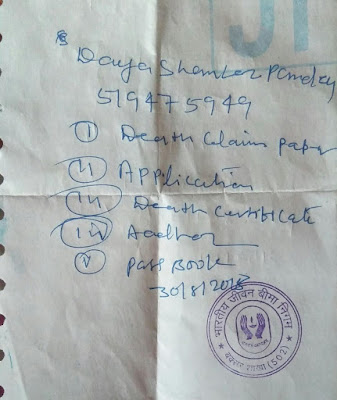 Daya Shanker Pandey
519475949
(i) Death Claim paper
(ii) Application
(iii) Death Certificate
(iv) Aadhar
(v) Pass Book
30/8/2018
भारतीय जीवन बीमा निगम
शाखा